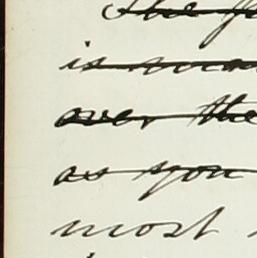 The
is
over the
as you
most